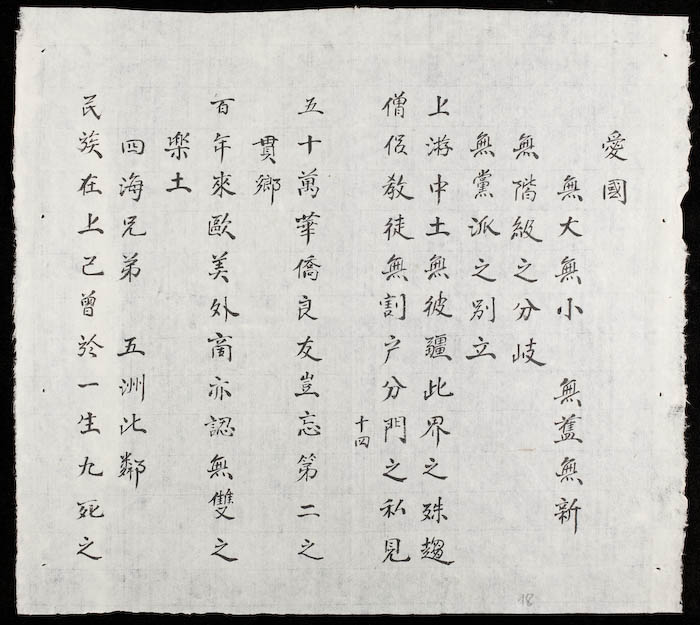 愛國
無大無小　無舊無新
無階級之分岐
無黨派之別立
上游中土無彼疆此界之殊趨
僧侶教徒無割戶分門之私見
十四
五十萬華僑良友豈忘第二之
貫鄉
百年來歐美外商亦認無雙之
樂土
四海兄弟　五洲比鄰
民族在上已曾於一生九死之
18